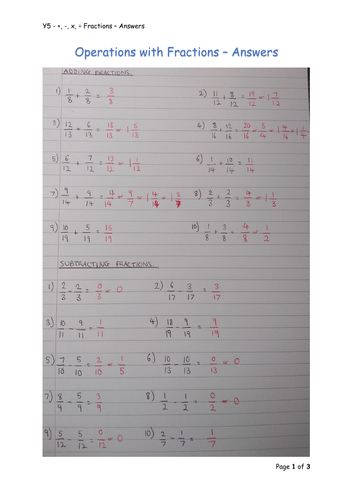 Y5 - +, -, x, ÷ Fractions – Answers
Operations with Fractions – Answers
ADDING FRACTIONS.
1) 1/8 + 2/8 = 3/8 2) 11/12 + 8/12 = 19/12 = 1 7/12
3) 12/13 + 6/13 = 18/13 = 1 5/13 4) 8/16 + 12/16 = 20/16 = 5/4 = 1 4/16 = 1 1/4
5) 6/12 + 7/12 = 13/12 = 1 1/12 6) 1/14 + 10/14 = 11/14
7) 9/14 + 9/14 = 18/14 = 9/7 = 1 4/14 = 1 2/7 8) 2/3 + 2/3 = 4/3 = 1 1/3
9) 10/19 + 5/19 = 15/19 10) 1/8 + 3/8 = 4/8 = 1/2
SUBTRACTING FRACTIONS.
1) 2/3 - 2/3 = 0/3 = 0 2) 6/17 - 3/17 = 3/17
3) 10/11 - 9/11 = 1/11 4) 18/19 - 9/19 = 9/19
5) 7/10 - 5/10 = 2/10 = 1/5 6) 10/13 - 10/13 = 0/13 = 0
7) 8/9 - 5/9 = 3/9 8) 1/2 - 1/2 = 0/2 = 0
9) 5/12 - 5/12 = 0/12 = 0 10) 2/7 - 1/7 = 1/7
Page 1 of 3